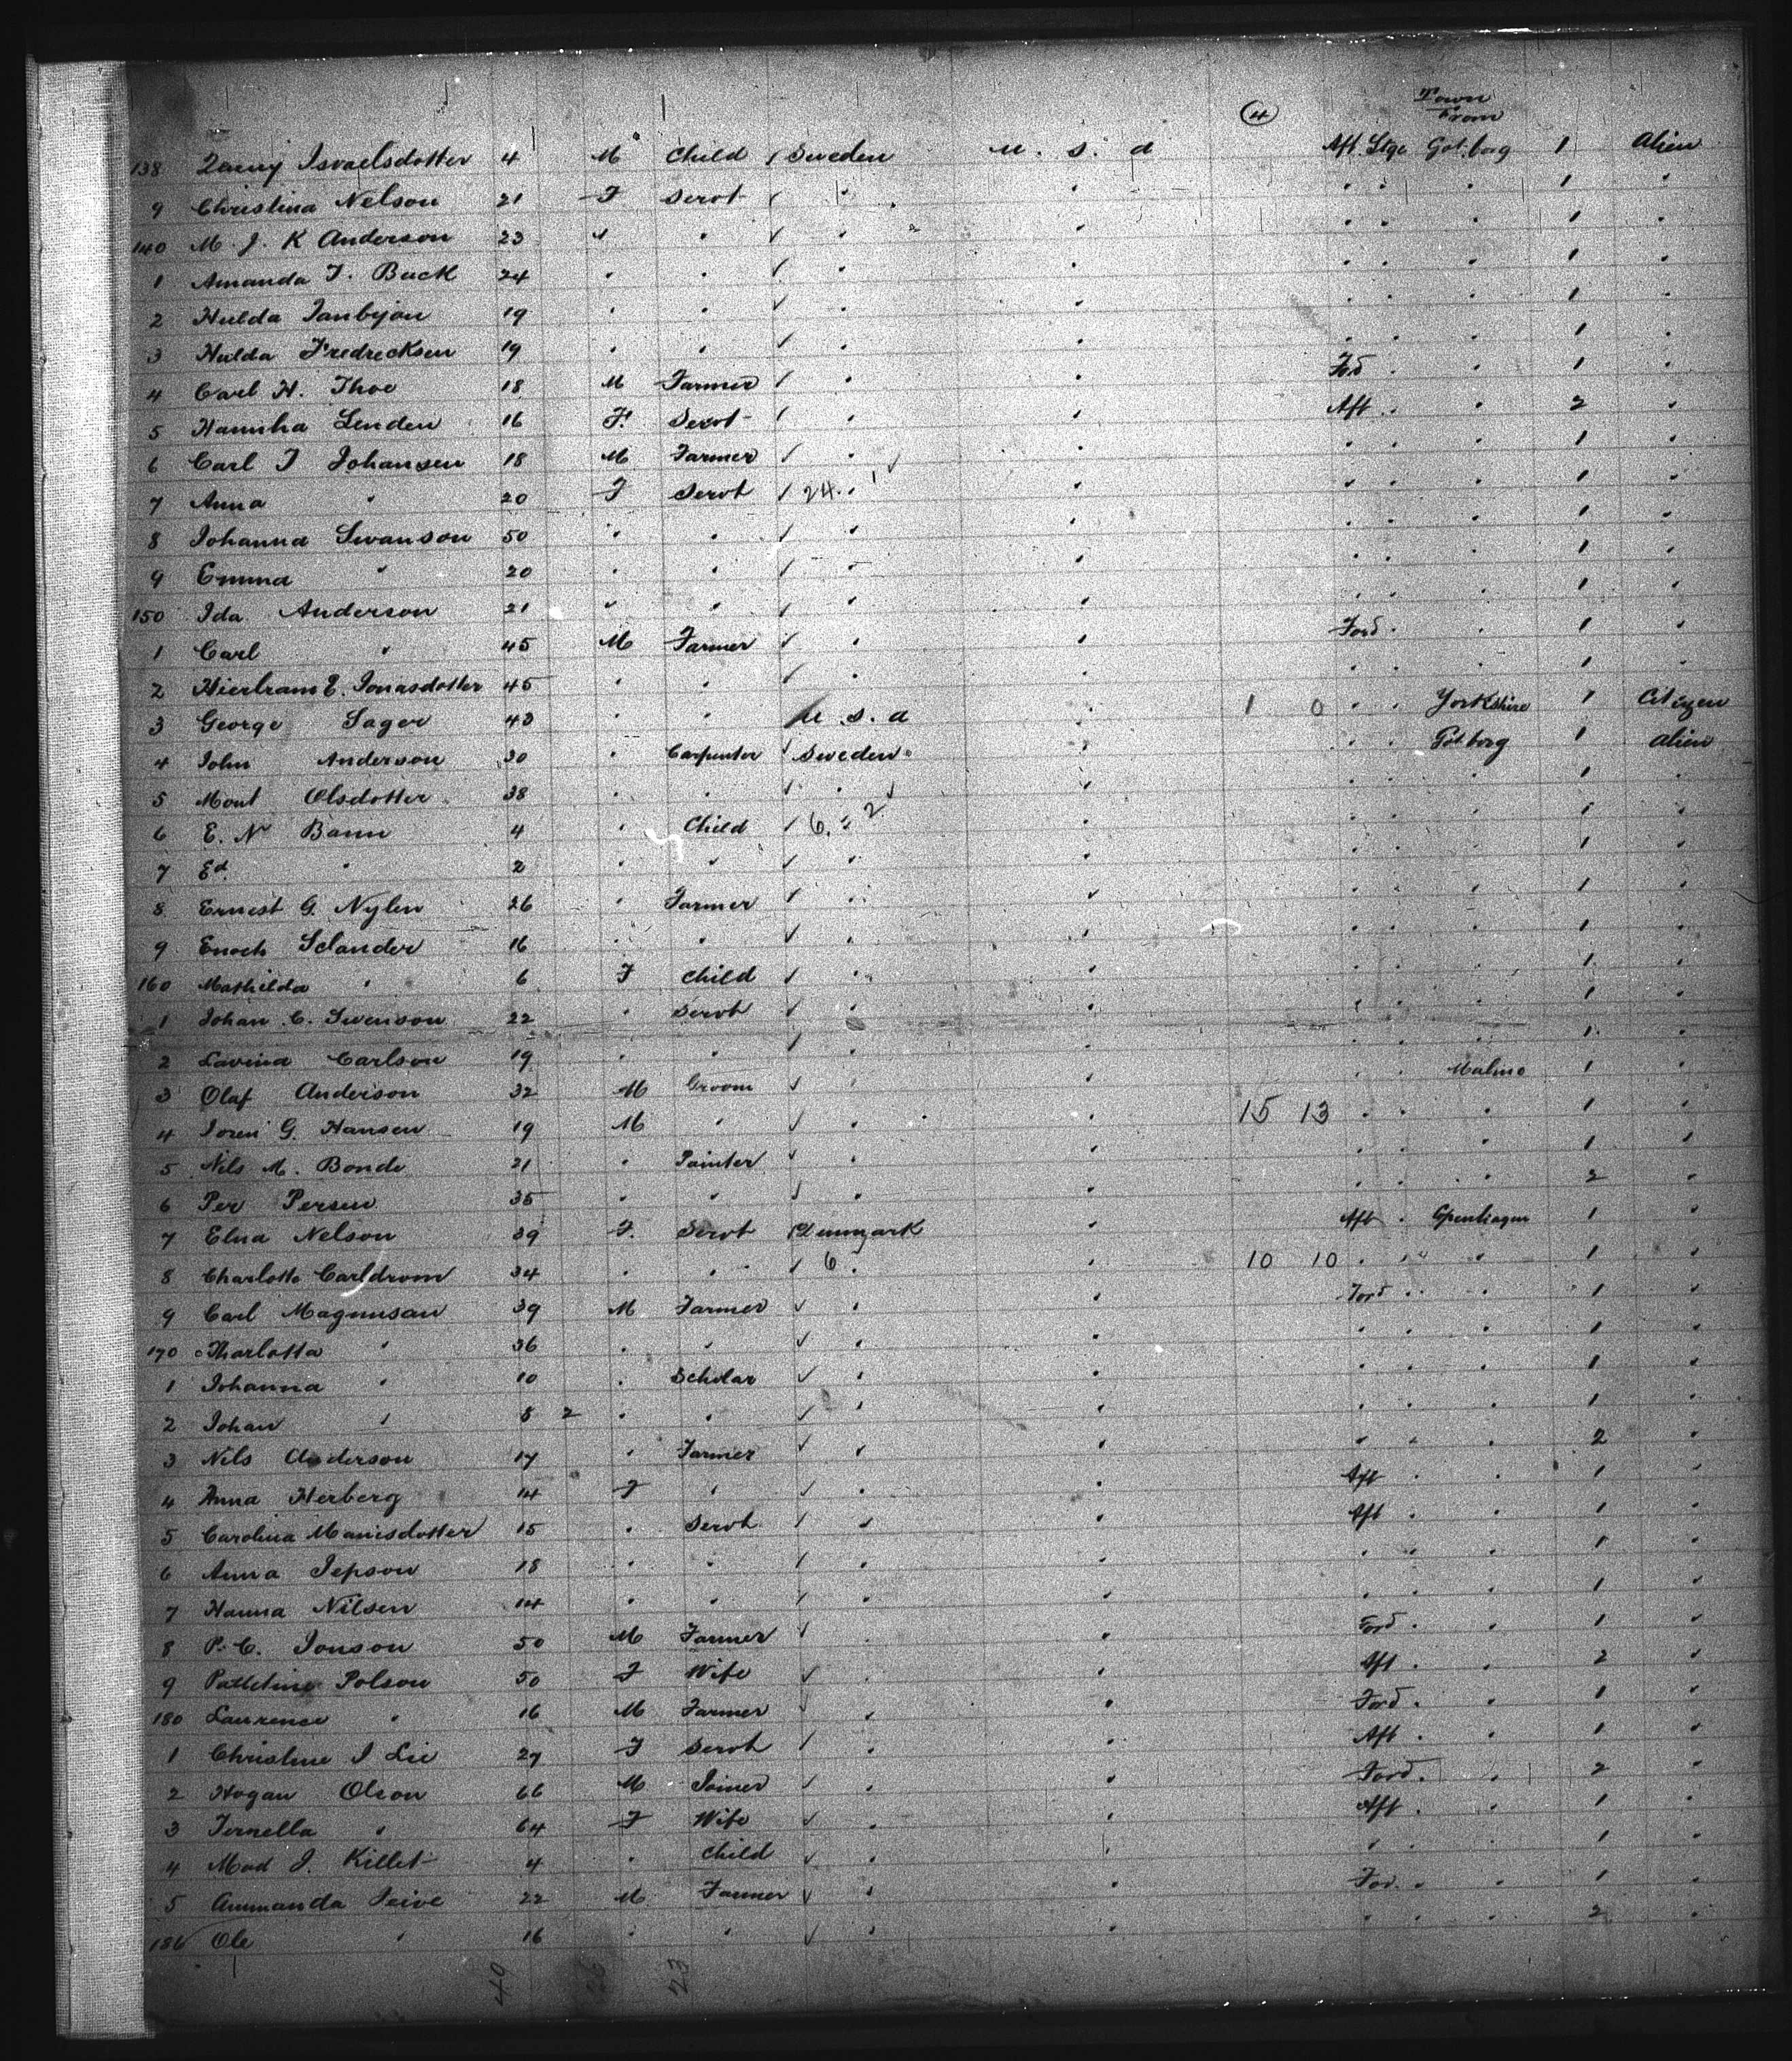 4
Town
From
138 Isvaelsdotter 4 M Child / Sweden U. S. a Aft Stge Got.borg 1 Alien
9 Christina Nelson 21 F Servt / " " " " " 1 "
140 M. J. K Anderson 23 " " / " " " " " 1 "
1 Amanda T. Buck 24 " " / " " " " " 1 "
2 Hulda 19 " " / " " " " " 1 "
3 Hulda Fredrecksen 19 " " / " " " " " 1 "
4 Carl H. Thoe 18 M Farmer / " " Ford " " 1 "
5 Hannha Lenden 16 F. Servt / " " Aft " " 2 "
6 Carl J Johansen 18 M Farmer / " " " " " 1 "
7 Anna " 20 F Servt / 24. " 1 " " " " 1 "
8 Johanna Swanson 50 " " / " " " " " 1 "
9 Emma " 20 " " / " " " " " 1 "
150 Ida Anderson 21 " " / " " " " " 1 "
1 Carl " 45 M Farmer / " " Ford " " 1 "
2 E. Jonasdotter 45 " " / " " " " " 1 "
3 George Sager 43 " " / U. S. a " 1 0 " " Yorkshire 1 Citizen
4 John Anderson 30 " Carpenter / Sweden " " " Gotborg 1 Alien
5 Olsdotter 38 " " / " " " " " 1 "
6 E. N Bann 4 " Child / 6. " 2 " " " " 1 "
7 Ed. " 2 " " / " " " " " 1 "
8 Ernest G. Nylen 26 " Farmer / " " " " " 1 "
9 Enoch Selander 16 " " / " " " " " 1 "
160 Mathilda " 6 F Child / " " " " " 1 "
1 Johan C. Swenson 22 " Servt / " " " " " 1 "
2 Lavina Carlson 19 " " / " " " " " 1 "
3 Olaf Anderson 32 M Groom / " " " " Malmo 1 "
4 G. Hansen 19 M " / " " 15 13 " " " 1 "
5 Nils M. Bonde 21 " Painter / " " " " " 1 "
6 Per Persen 35 " " / " " " " " 2 "
7 Elna Nelson 39 F. Servt / Denmark " Aft " Openhagen 1 "
8 Charlotte Carldrom 34 " " / 6 " " 10 10 " " " 1 "
9 Carl Magnusan 39 M Farmer / " " Ford " " 1 "
170 Charlotta " 36 " " / " " " " " 1 "
1 Johanna " 10 " Scholar / " " " " " 1 "
2 Johan " 8 2 " " / " " " " " 1 "
3 Nils Anderson 17 " Farmer / " " " " " 2 "
4 Anna Herberg 14 F " / " " Aft " " 1 "
5 Carolina Manisdotter 15 " Servt / " " Aft " " 1 "
6 Anna Jepson 18 " " / " " " " " 1 "
7 Hanna Nilsen 14 " " / " " " " " 1 "
8 P. C. Jonson 50 M Farmer / " " Ford " " 1 "
9 Polson 50 F Wife / " " Aft " " 2 "
180 Laurence " 16 M Farmer / " " Ford " " 1 "
1 Christine J Lie 27 F Servt / " " Aft " " 1 "
2 Hogan Olson 66 M Joiner / " " Ford " " 2 "
3 Ternella " 64 F Wife / " " Aft " " 1 "
4 Mad J. Killet 4 " Child / " " " " " 1 "
5 Ammanda Seive 22 M Farmer / " " For. " " 1 "
186 Ole " 16 " " / " " " " " 2 "
40 26 23